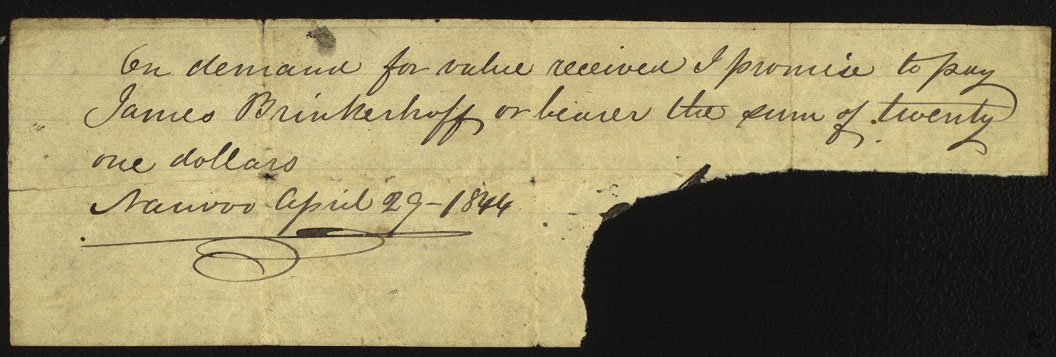 On demand for value received I promise to pay
James Brinkerhoff or bearer the sum of twenty
one dollars
Nauvoo April 29-1844